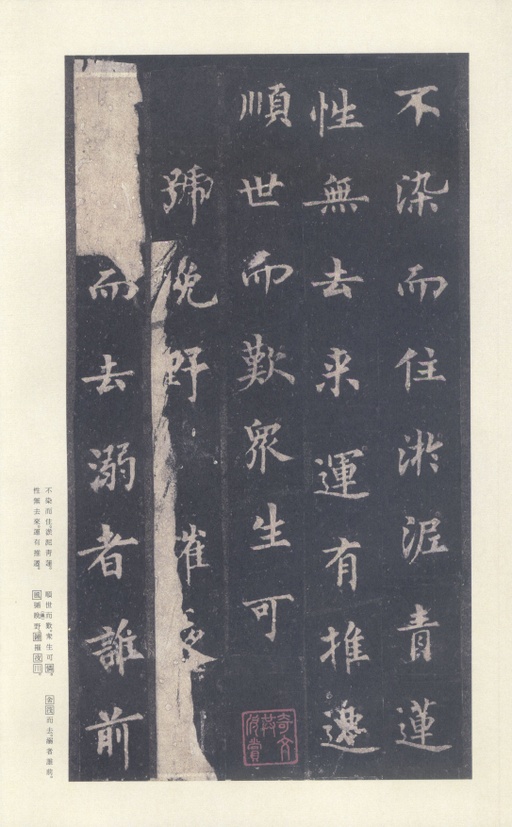 不染而住淤泥青蓮
性無去来運有推遷
順世而歎衆生可
號晚野 摧
而去溺者誰前
不染而住淤泥青蓮。
性無去來運有推遷。
順世而歎衆生可
野 摧
而去溺者誰前。